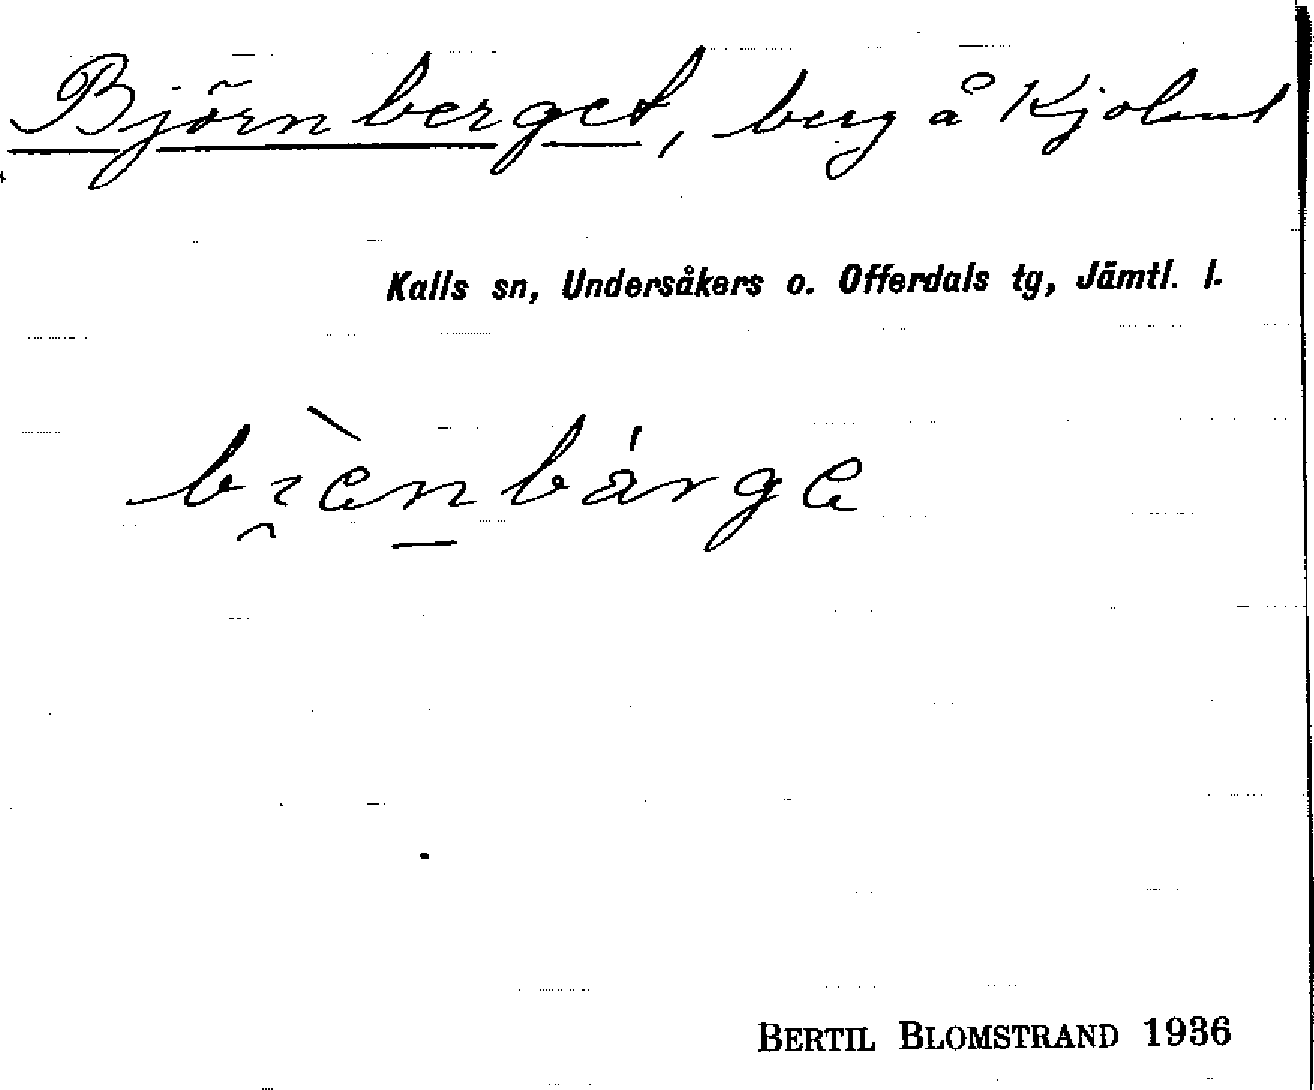 Björnberget, berg å Kjoland
Kalls sn, Undersåkers o. Offerdals tg, Jämtl. l.
BERTIL BLOMSTRAND 1936